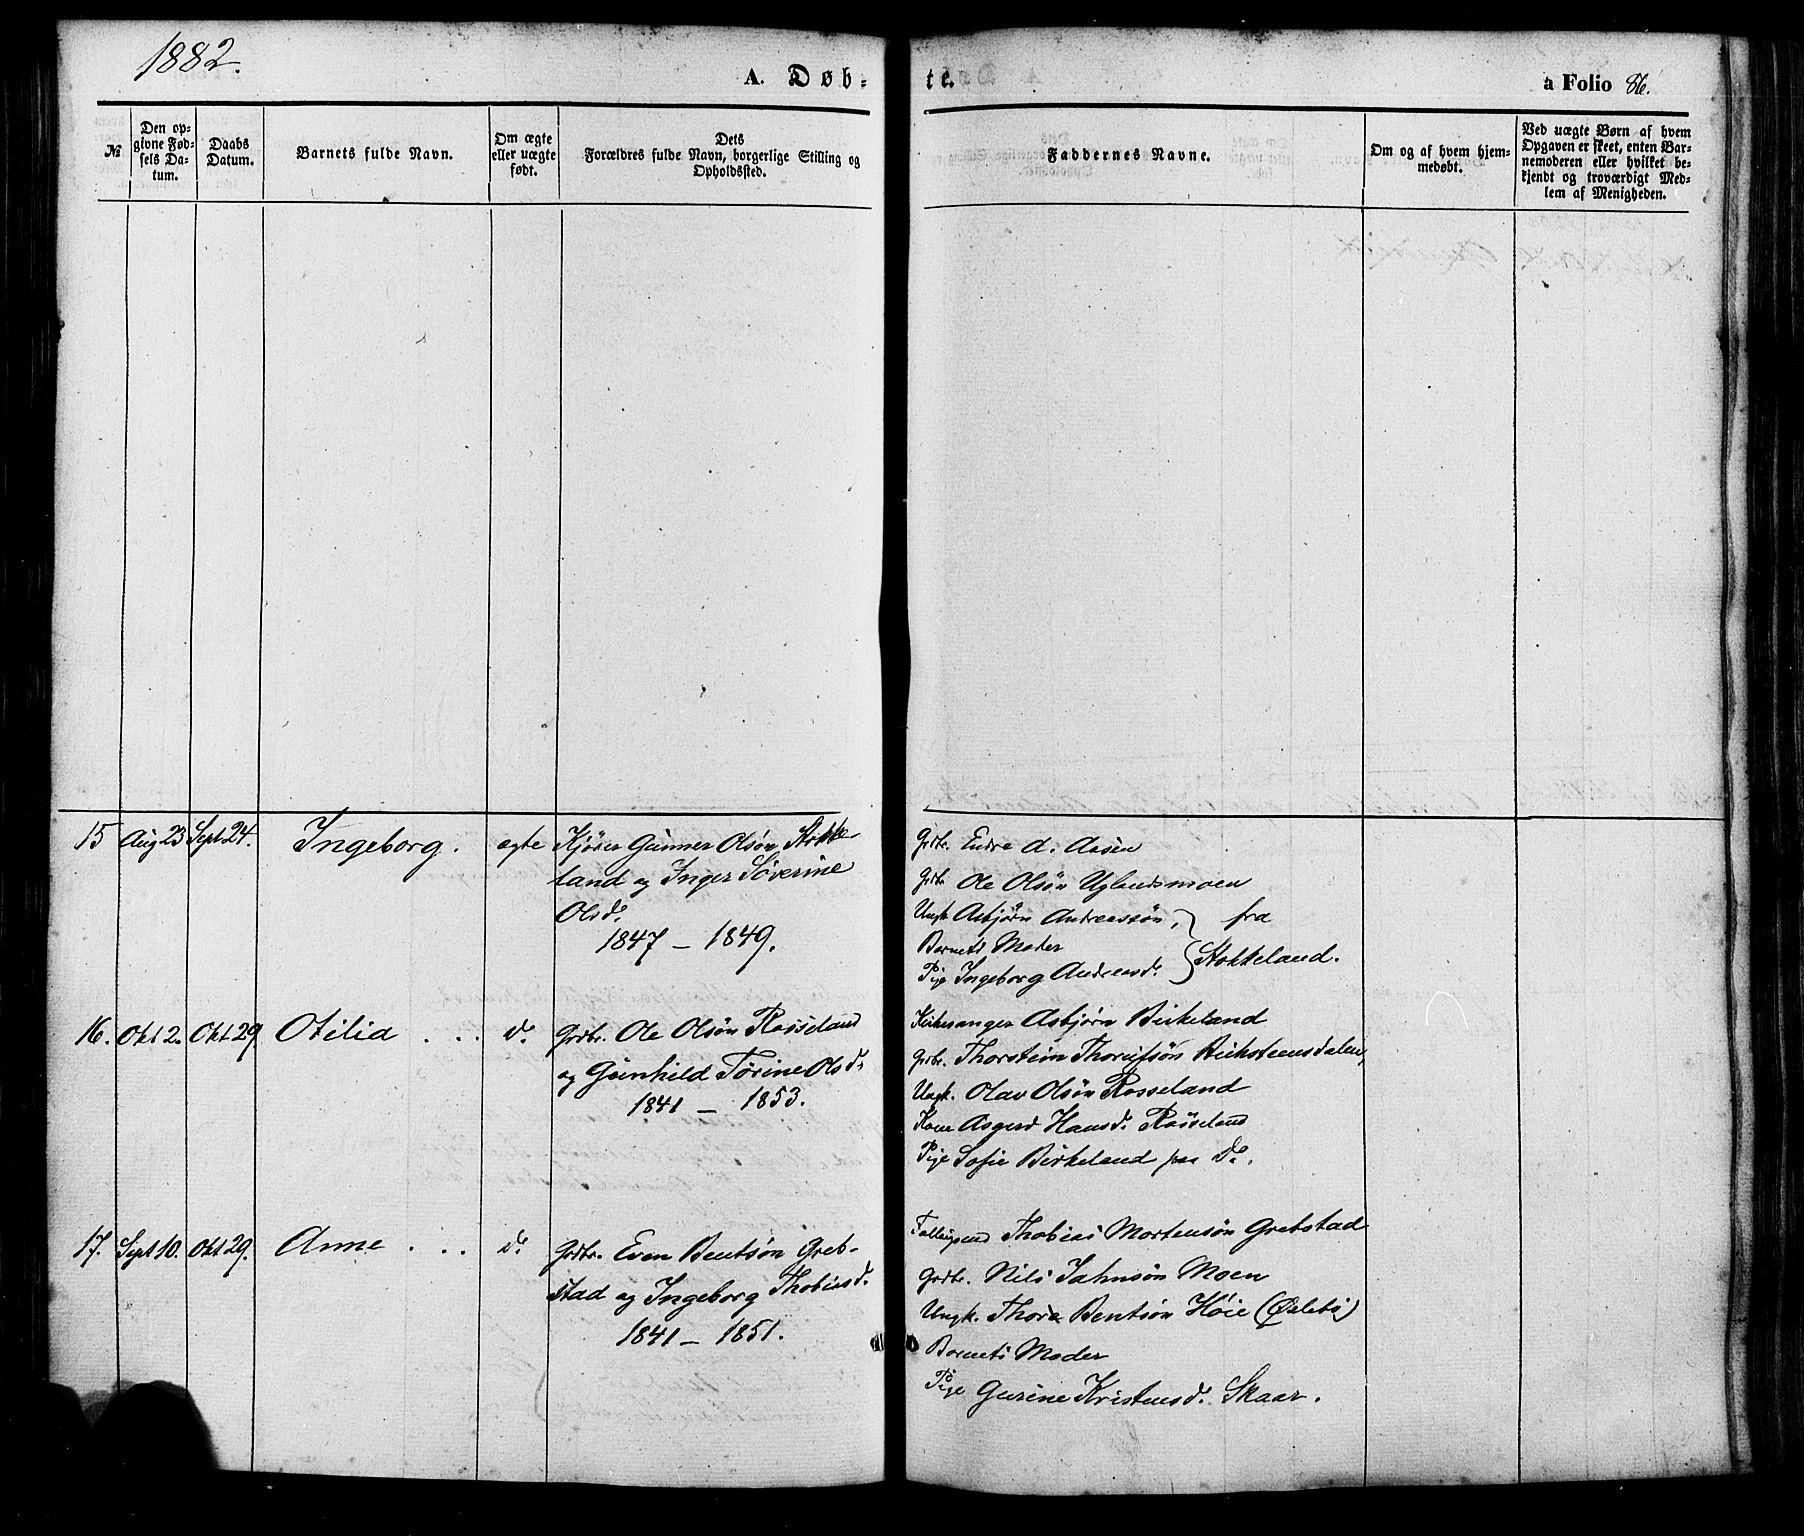 1882.
A. Døb-
te.
a Folio 86.
№
Den op-
givne Fød-
sels Da-
tum.
Daabs
Datum.
Barnets fulde Navn.
Om ægte
eller uægte
født.
Dets
Forældres fulde Navn, borgerlige Stilling og
Opholdssted.
Faddernes Navne.
Om og af hvem hjem-
medøbt.
Ved uægte Børn af hvem
Opgaven er skeet, enten Bar-
nemoderen eller hvilket be-
kjendt og troværdigt Med-
lem af Menigheden.
15 Aug 23 Sept 24. Ingeborg. ægte Gunner Olsøn Stokke-
land og Inger Severine
Olsd.
1847 – 1849.
Grdbr. Endre A. Aasen
Grdbr. Ole Olsøn Uglandsmoen
Ungk. Asbjørn Andreassøn,
Barnets Moder
Pige Ingeborg Andreasd.
fra
Stokkeland.
16. Okt 2. Okt 29 Otilia . . . d. Grdbr. Ole Olsøn Rosseland
og Gunhild Tørine Olsd.
1841 – 1853.
Kirkesanger Asbjørn Birkeland
Grdbr. Thorstein
Ungk. Olav Olsøn Rosseland
Kone Asgerd Hansd. Rosseland
Pige Sofie Birkeland paa Do.
17. Sept 10. Okt 29. Anne . . . d. Grdbr. Even Bentsøn Greb-
stad og Ingeborg Thobiasd.
1841 – 1851.
Thobias Mortensøn Grebstad
Grdbr. Nils Jahnsøn Moen
Ungk. Thore Bentsøn Høie (Øslebø)
Barnets Moder
Pige Gurine Kristensd. Skaar.